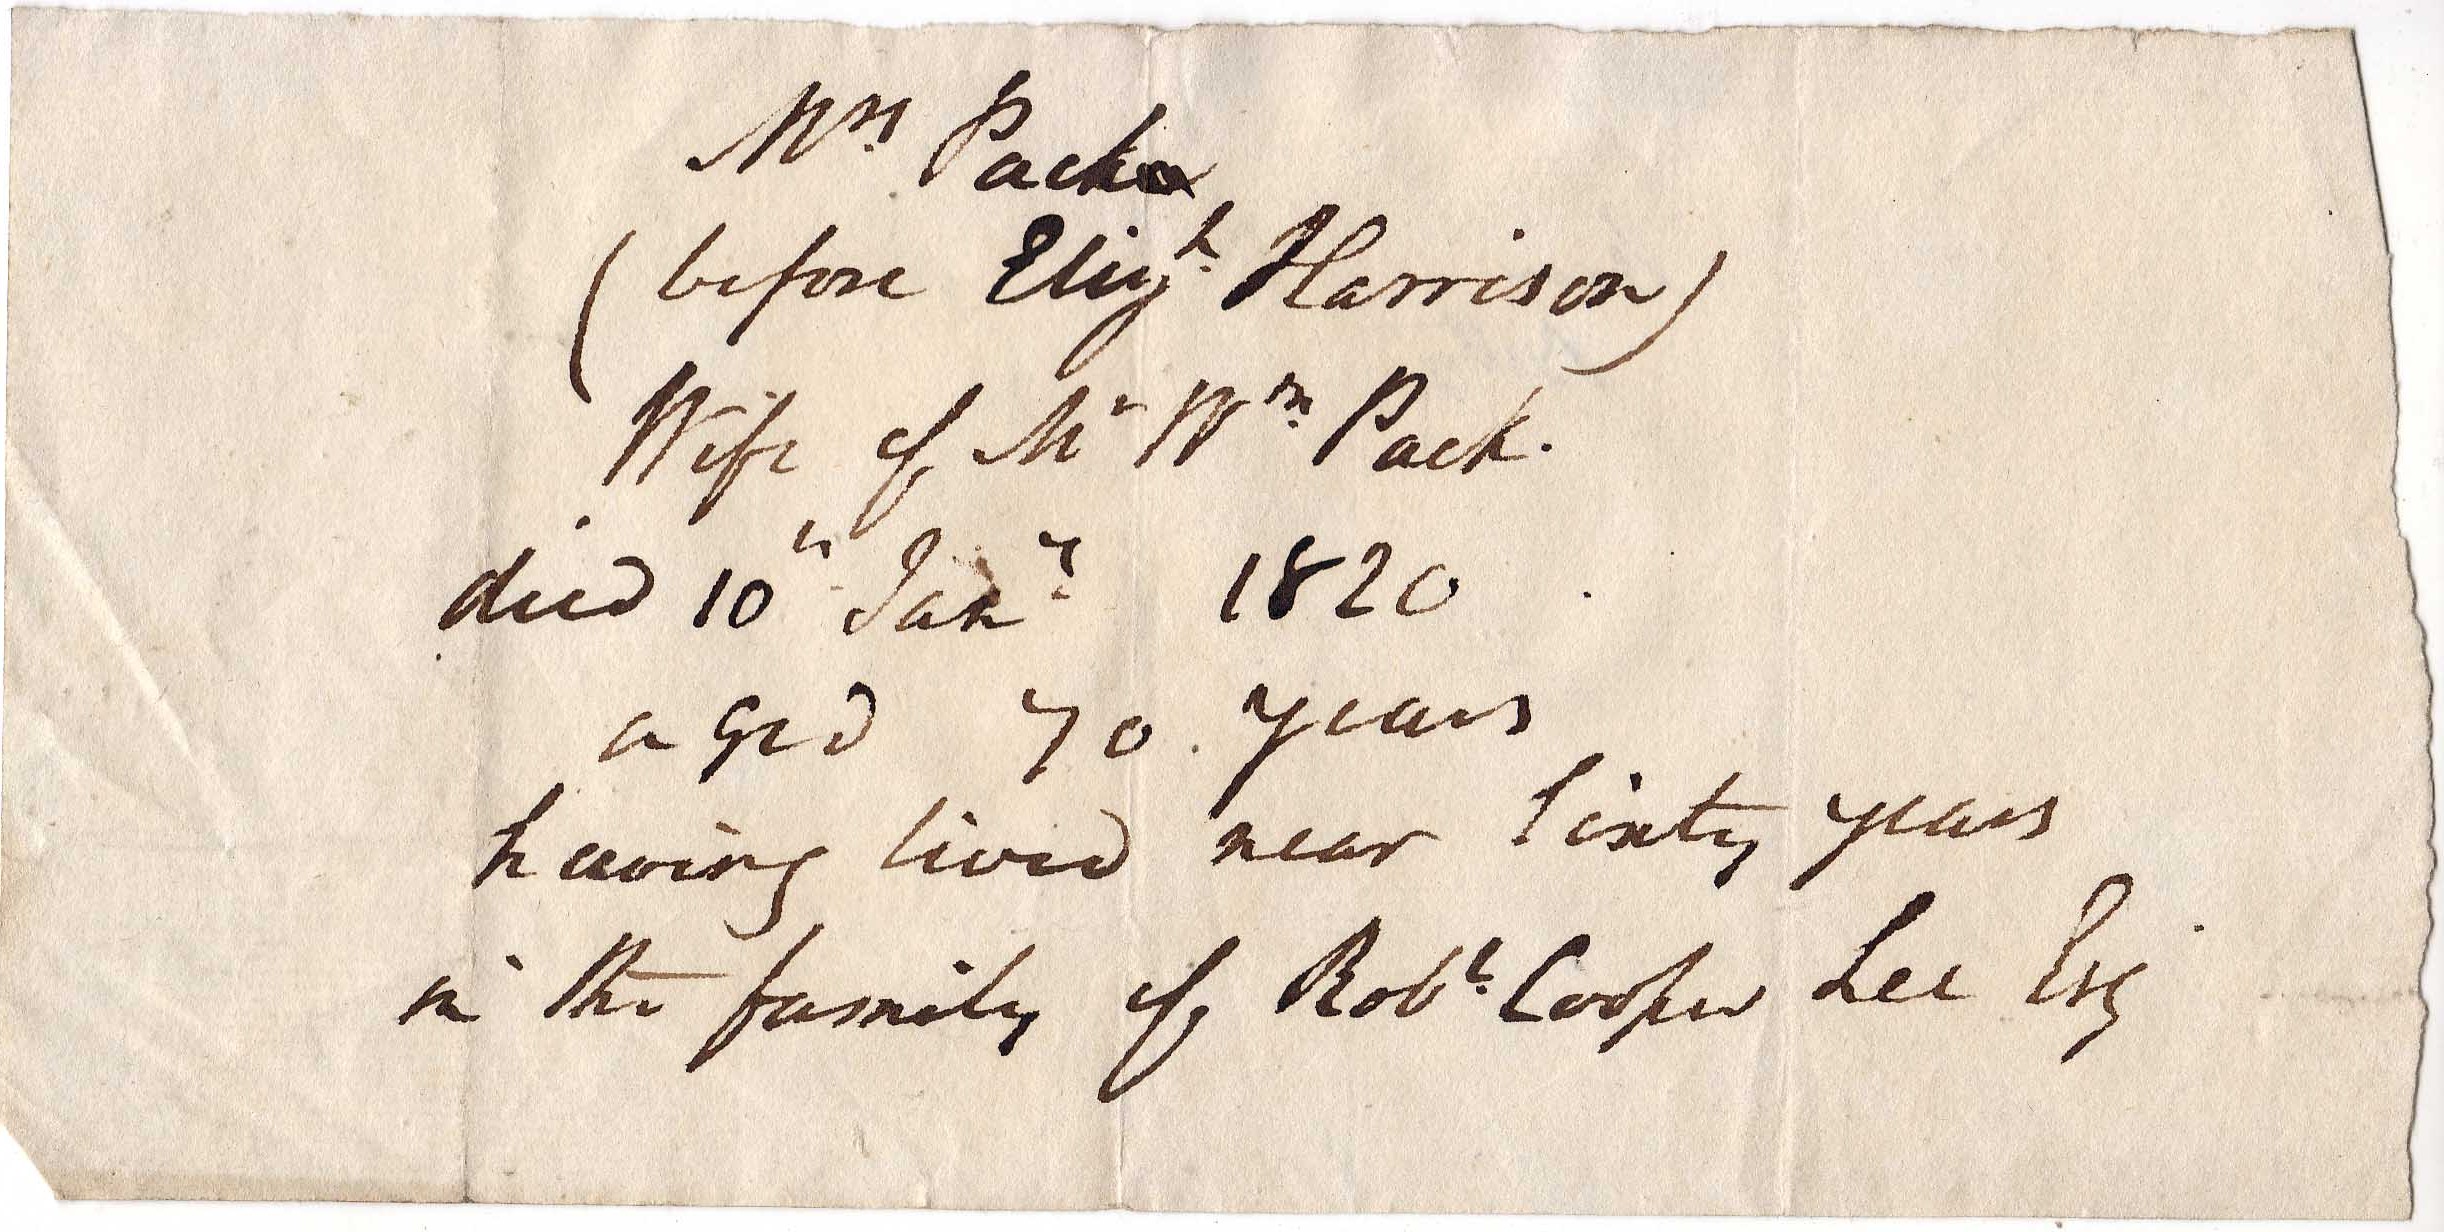 Mrs Pack
(before Elizh. Harrison)
Wife of Mr Wm. Pack.
died 10th Jany. 1820
aged 70 years
having lived near Sixty years
in the family of Robt. Cooper Lee Esq